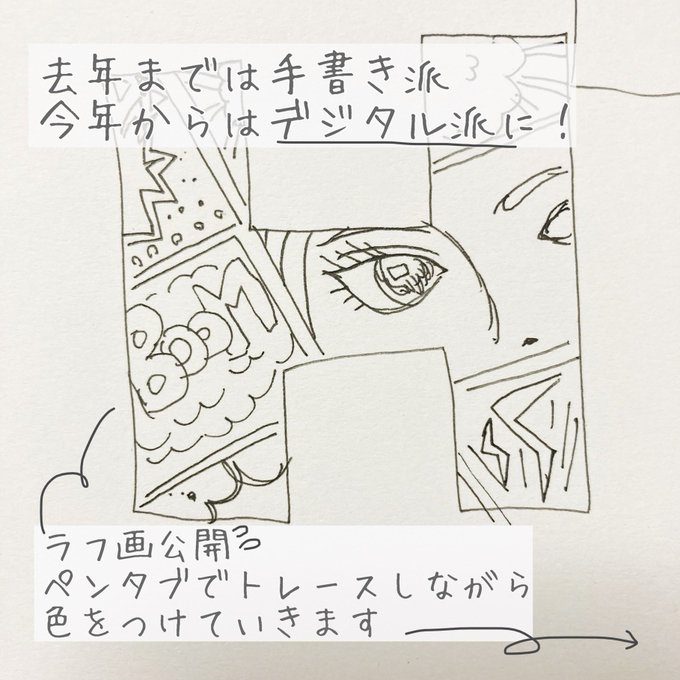 去年までは手書き派
今年からはデジタル派に！
BOOM
ラフ画公開
ペンタブでトレースしながら
色をつけていきます